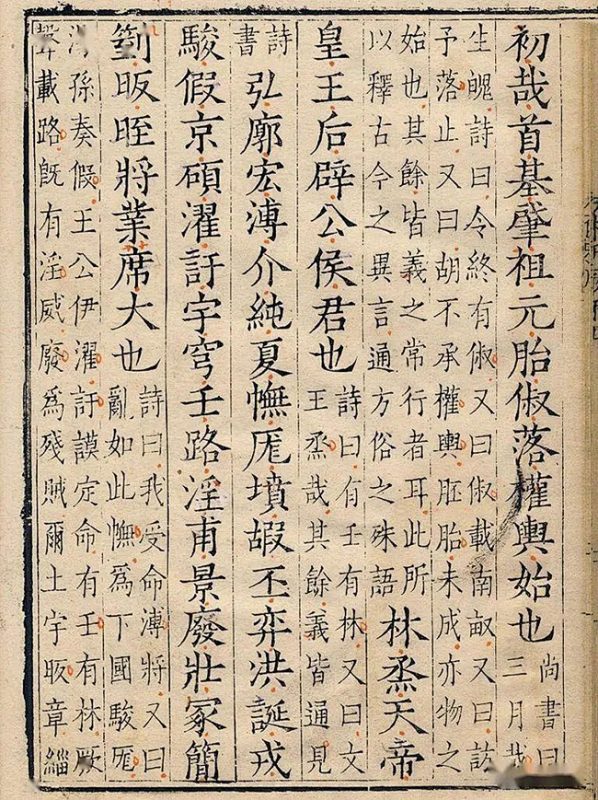 初哉首基肇祖元胎俶落權輿始也
尚書曰
三月哉
生魄詩曰令終有俶又曰俶載南畝又曰訪
予落止又曰胡不承權輿胚胎未成亦物之
始也其餘皆義之常行者耳此所
以釋古今之異言通方俗之殊語
林烝天帝
皇王后辟公侯君也
詩曰有壬有林又曰文
王烝哉其餘義皆通見
詩
書
弘廓宏溥介純夏幠厖墳嘏丕弈洪誕戎
駿假京碩濯訏宇穹壬路淫甫景廢壯冢簡
箌昄晊將業席大也
詩曰我受命溥將又曰
亂如此幠為下國駿厖
湯孫奏假王公伊濯訏謨定命有壬有林厥
聲載路旣有淫威廢為殘賊爾土宇昄章緇